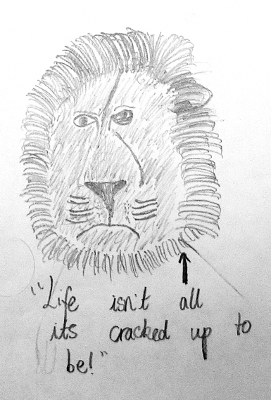 "Life isn't all
its cracked up to
be!"